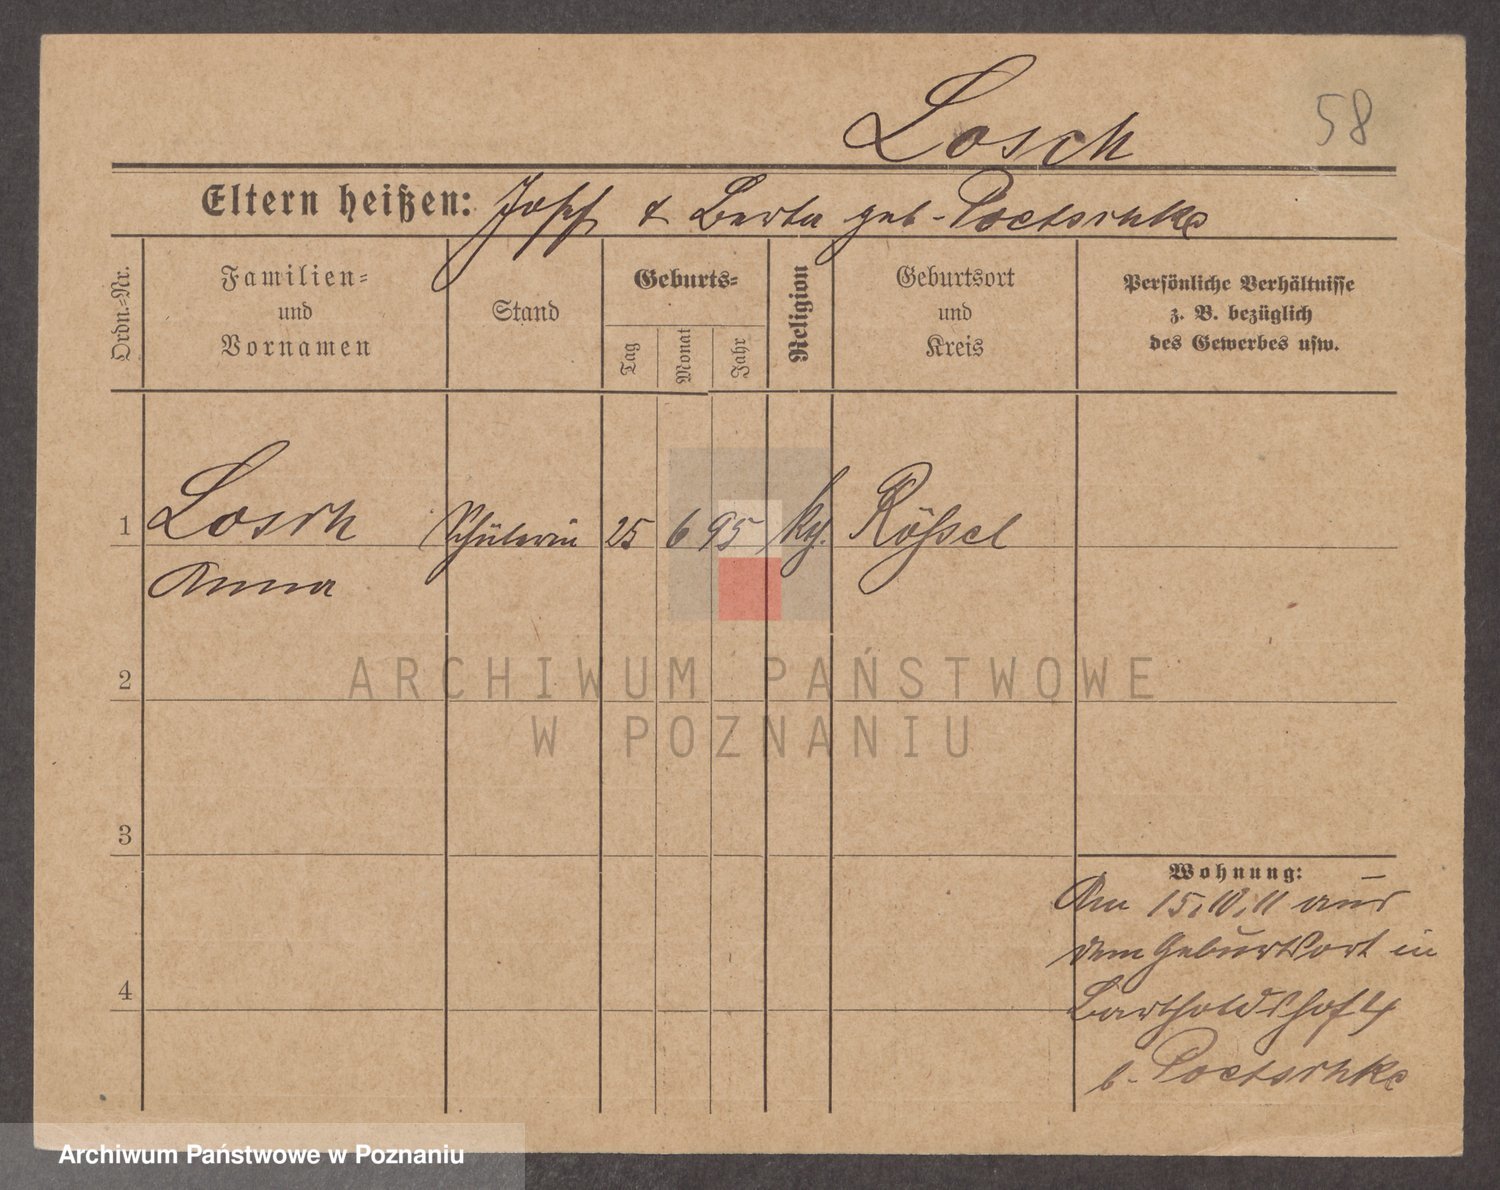 Losch
58
Eltern heißen: Josef & Berta geb. Poetschke
Ordn.-Nr.
Familien-
und
Vornamen
Stand
Geburts-
Tag
Monat
Jahr
Religion
Geburtsort
und
Kreis
Persönliche Verhältnisse
z. B. bezüglich
des Gewerbes usw.
1 Losch Schülerin 25 6 95 kg. Rößel
Anna
2
ARCHIWUM PAŃSTWOWE
W POZNANIU
3
Wohnung:
Am 15.10.11 aus
dem Geburtsort in
4
Bartholdshof 4
b. Poetschke
Archiwum Państwowe w Poznaniu